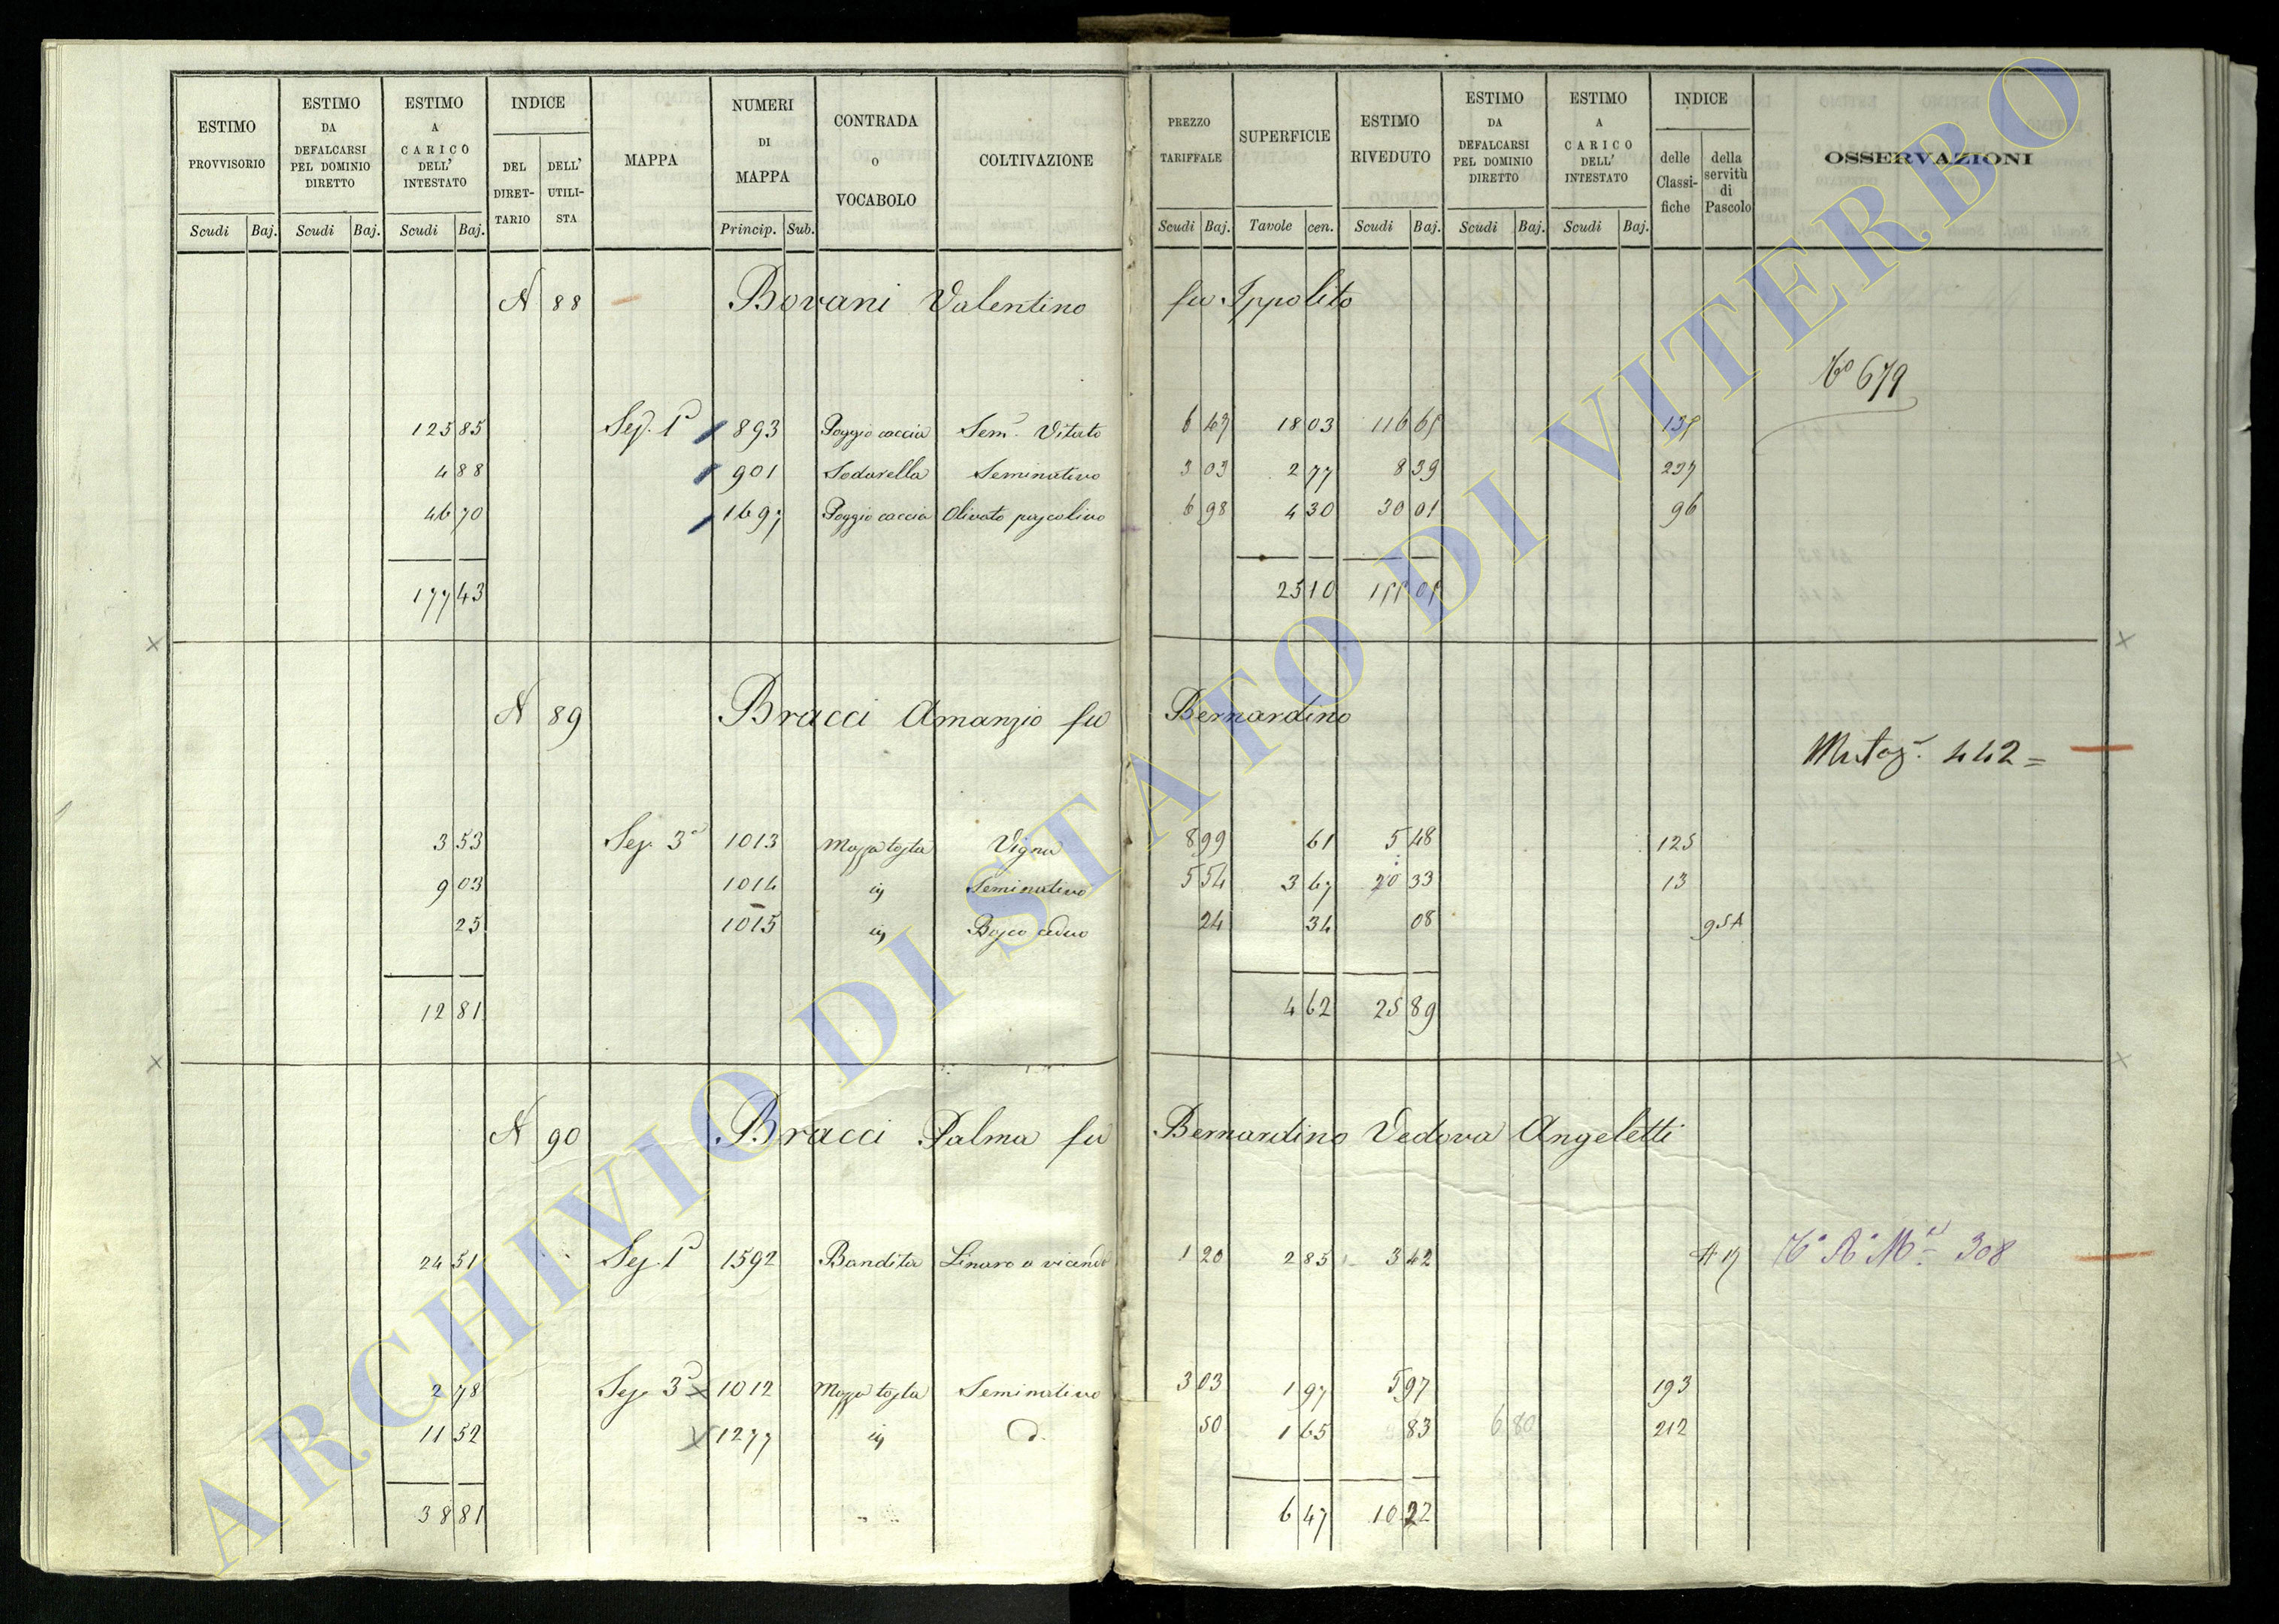 ESTIMO PROVVISORIO | ESTIMO DA DEFALCARSI PEL DOMINIO DIRETTO | ESTIMO A CARICO DELL' INTESTATO | INDICE | MAPPA | NUMERI DI MAPPA | CONTRADA O VOCABOLO | COLTIVAZIONE | PREZZO TARIFFALE | SUPERFICIE | ESTIMO RIVEDUTO | ESTIMO DA DEFALCARSI PEL DOMINIO DIRETTO | ESTIMO A CARICO DELL' INTESTATO | INDICE | OSSERVAZIONI
DEL DIRETTARIO | DELL' UTILISTA | delle Classifiche | della servitù di Pascolo
Scudi | Baj. | Scudi | Baj. | Scudi | Baj. | Princip. | Sub. | Scudi | Baj. | Tavole | cen. | Scudi | Baj. | Scudi | Baj. | Scudi | Baj.
N 88 Bovani Valentino fu Ippolito
679
125 85 Sez. 1ª 893 Poggio caccia Sem. Vitato 6 47 18 03 116 65 135
4 88 901 Sodarella Seminativo 3 03 2 77 8 39 237
46 70 1697 Poggio caccia Olivato pascolivo 6 98 4 30 30 01 96
177 43 25 10 155 05
N 89 Bracci Amanzio fu Bernardino
Mutaz. 442 =
3 53 Sez. 3ª 1013 Mazzatosta Vigna 8 99 61 5 48 125
9 03 1014 id Seminativo 5 54 3 67 20 33 13
25 1015 id Bosco ceduo 24 34 08 95A
12 81 4 62 25 89
N 90 Bracci Palma fu Bernardino Vedova Angeletti
24 51 Sez. 1ª 1592 Bandita Linaro a vicenda 1 20 2 85 3 42 308
2 78 Sez. 3ª 1012 Mazzatosta Seminativo 3 03 1 97 5 97 193
11 52 1277 id d. 50 1 65 83 6 80 212
38 81 6 47 10 22
ARCHIVIO DI STATO DI VITERBO